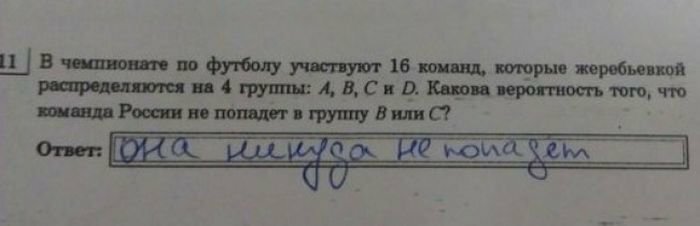 11 В чемпионате по футболу участвуют 16 команд, которые жеребьевкой
распределяются на 4 группы: A, B, C и D. Какова вероятность того, что
команда России не попадет в группу B или C?
Ответ: она никуда не попадет